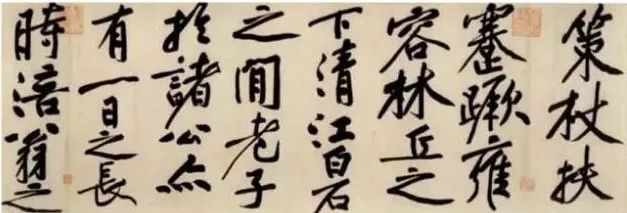 策杖扶
蹇蹶雍
容林丘之
下清江白石
之間老子
於諸公亦
有一日之長
時涪翁之